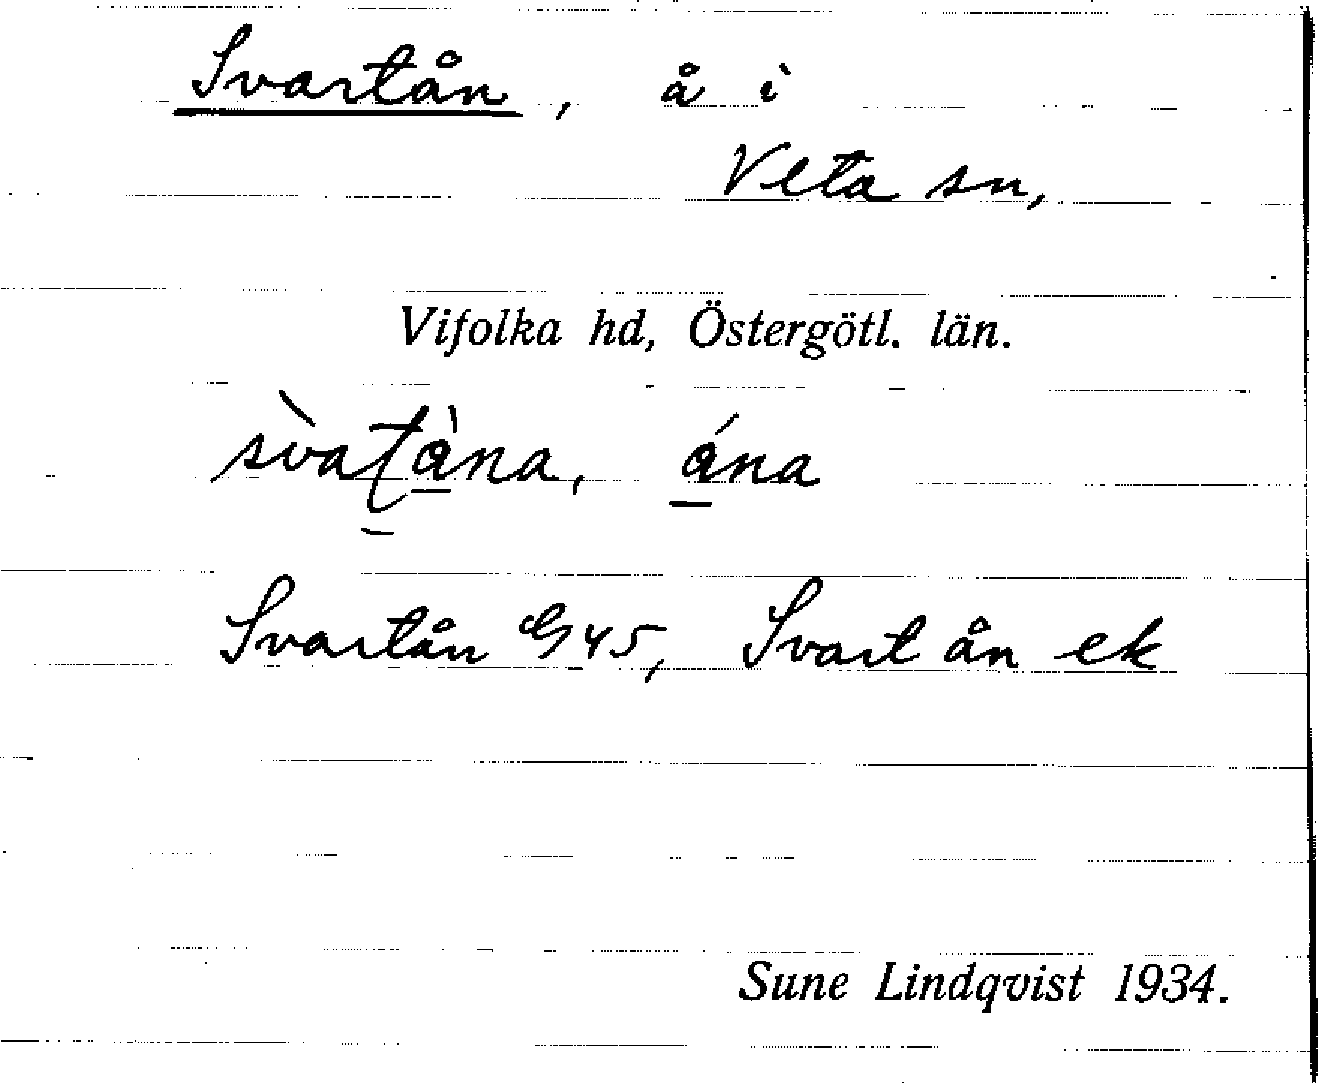 Svartån, å i
Veta sn,
Vifolka hd, Östergötl. län.
svàʈà̱na, á̱na
Svartån G45, Svart ån ek
Sune Lindqvist 1934.